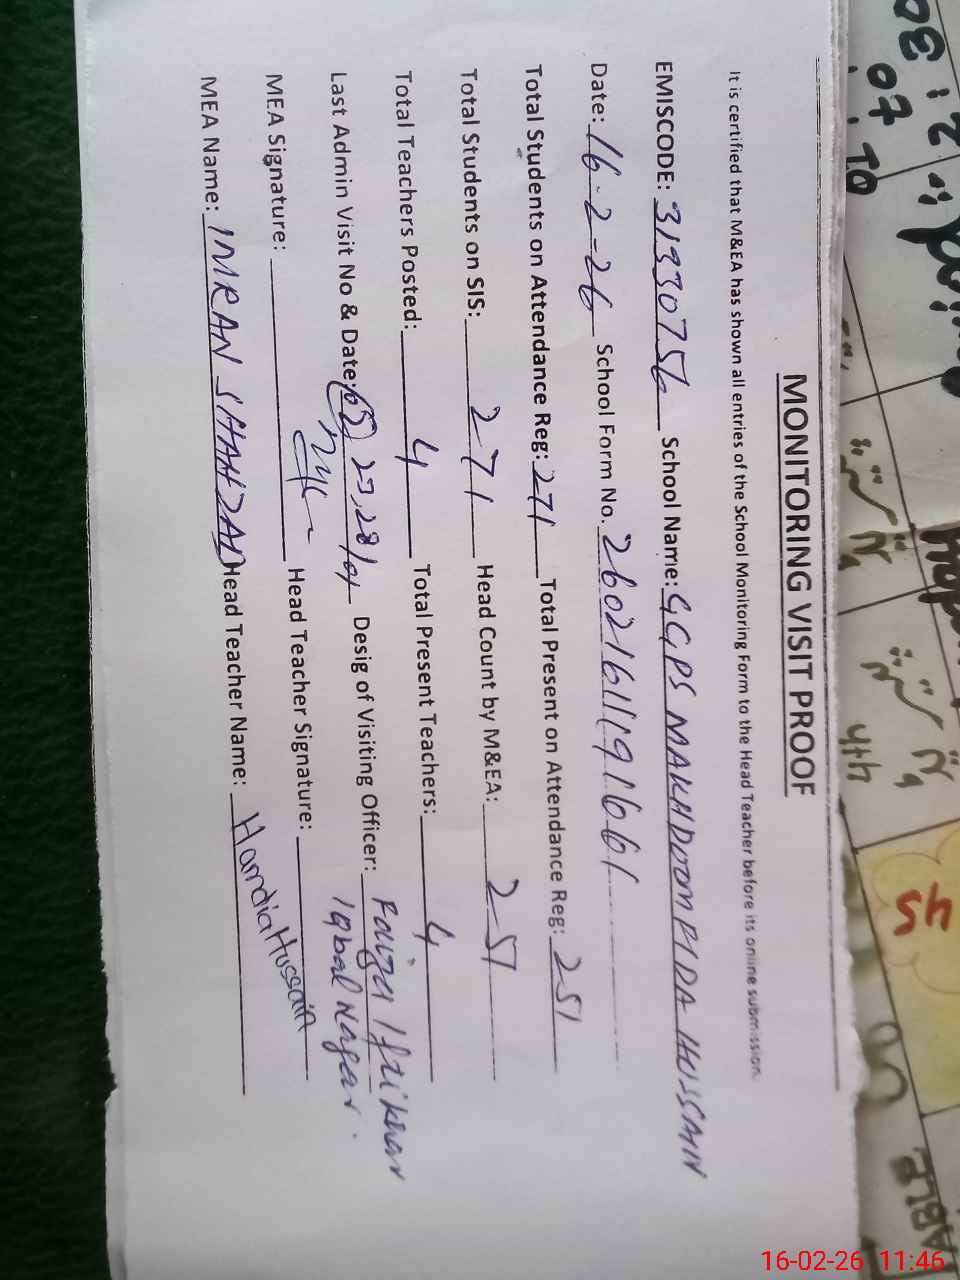 MONITORING VISIT PROOF
It is certified that M&EA has shown all entries of the School Monitoring Form to the Head Teacher before its online submission.
EMISCODE: 31330756 School Name: G.G.P.S MAKHDOOM PIDA HUSSAIN
Date: 16-2-26 School Form No. 260216111916661
Total Students on Attendance Reg: 271 Total Present on Attendance Reg: 251
Total Students on SIS: 271 Head Count by M&EA: 251
Total Teachers Posted: 4 Total Present Teachers: 4
Last Admin Visit No & Date: Desig of Visiting Officer: Fouzia Iftikhar
Iqbal Nagar.
MEA Signature: Head Teacher Signature:
MEA Name: IMRAN SHAHZAD Head Teacher Name: Hamdia Hussain
4th
45
ABLE
16-02-26 11:46